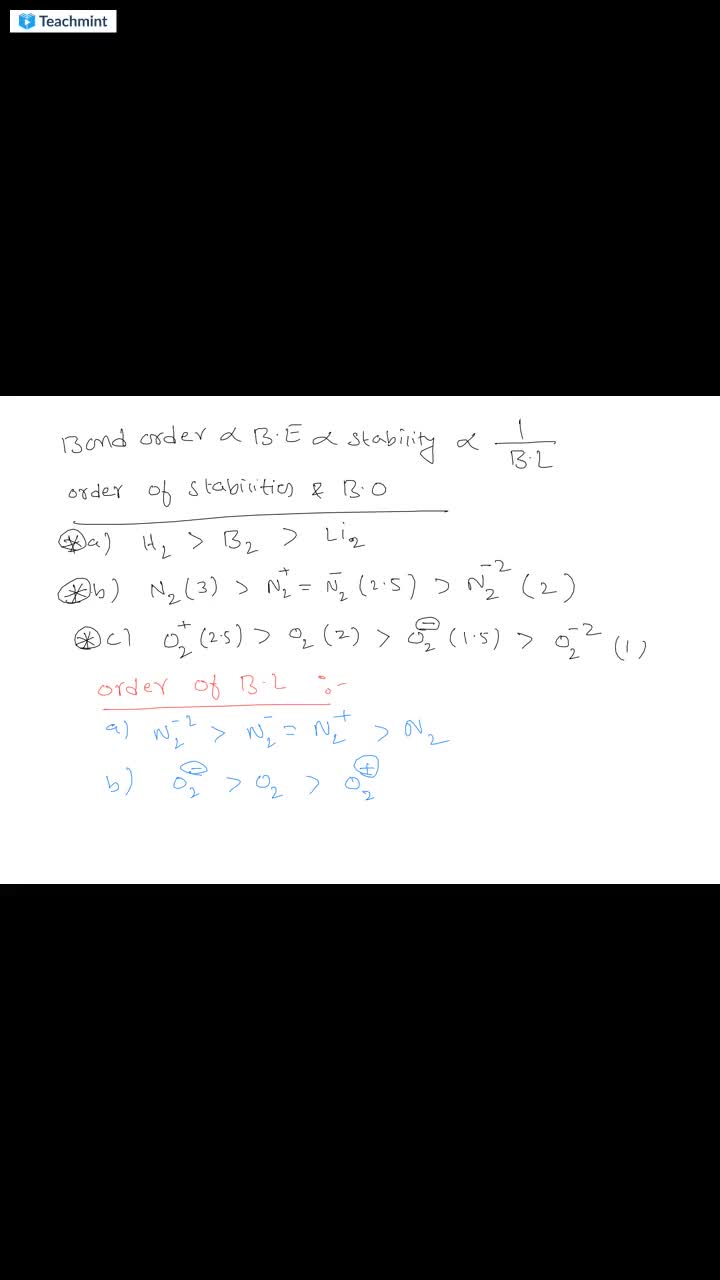 Teachmint
Bond order ∝ B.E ∝ stability ∝ 1/B.L
order of stabilities & B.O
*a) H₂ > B₂ > Li₂
*b) N₂(3) > N₂⁺ = N₂⁻ (2.5) > N₂⁻² (2)
*c) O₂⁺(2.5) > O₂(2) > O₂⁻(1.5) > O₂⁻² (1)
order of B.L :-
a) N₂⁻² > N₂⁻ = N₂⁺ > N₂
b) O₂⁻ > O₂ > O₂⁺